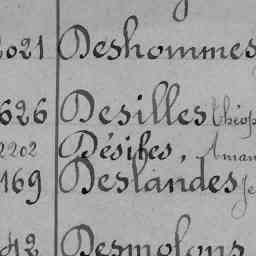 2021 Deshommes
626 Desilles Théop
2202 Désifes, Aman
169 Deslandes Je
42 Desmolons